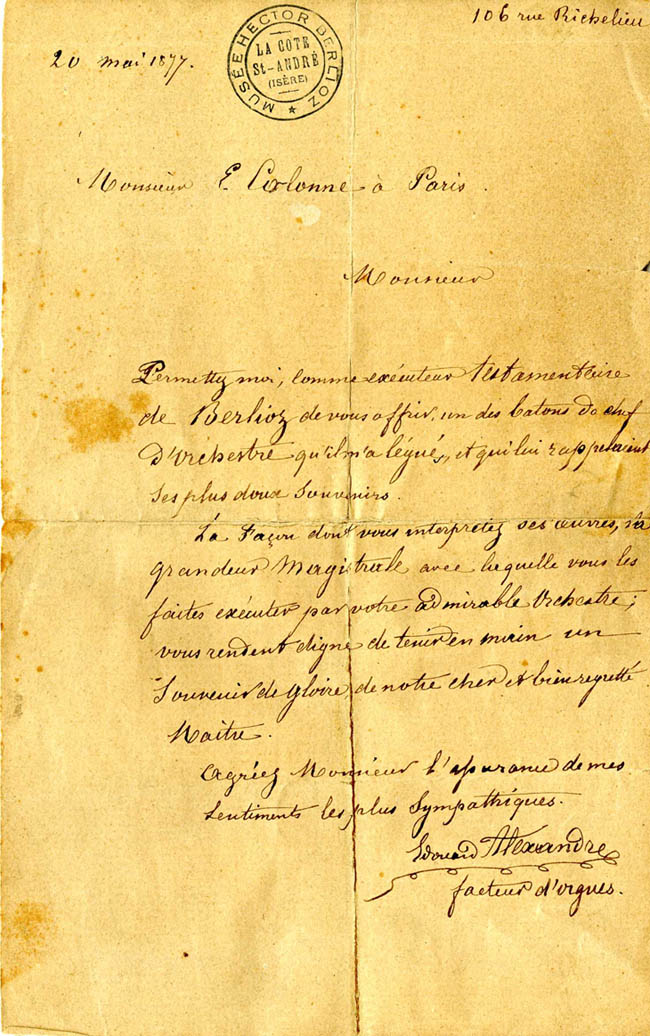 106 rue Richelieu
20 mai 1877.
MUSÉE HECTOR BERLIOZ
LA COTE
St-ANDRÉ
(ISÈRE)
Monsieur E. Colonne à Paris.
Monsieur
Permettez moi, comme exécuteur testamentaire
de Berlioz de vous offrir, un des batons de chef
D'Orchestre qu'il m'a légué, et qui lui rappelaient
ses plus doux souvenirs.
La Façon dont vous interpretez ses œuvres, la
grandeur Magistrale avec laquelle vous les
faites exécuter par votre admirable Orchestre;
vous rendent digne de tenir en main un
Souvenir de gloire, de notre cher et bien regretté
Maitre.
Agréez Monsieur l'assurance de mes
sentiments les plus Sympathiques.
Edouard Alexandre
facteur d'orgues.